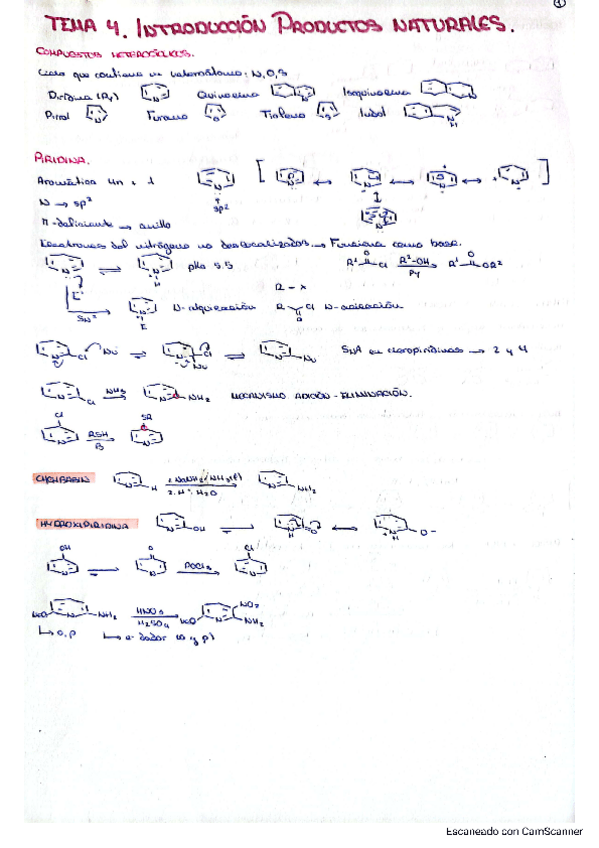 1
TEMA 4. INTRODUCCIÓN PRODUCTOS NATURALES.
COMPUESTOS HETEROCÍCLICOS.
que contiene un heteroátomo: N, O, S
Piridina (Py) Quinoleina Isoquinoleina
Pirrol Furano Tiofeno Indol
PIRIDINA.
Aromática 4n + 2
N → sp²
sp²
π-deficiente → anillo
Electrones del nitrógeno no deslocalizados → Funciona como base.
pKa 5.5 R¹ Cl R²-OH Py R¹ OR²
E SN² N-alquilación R-X R Cl N-acilación
Cl Nu Cl Nu Nu SNA en cloropiridinas → 2 y 4
Cl NH₃ NH₂ MECANISMO ADICIÓN-ELIMINACIÓN.
Cl RSH B SR
CHICHIBABIN H 1. NaNH₂/NH₃(l) 2. H⁺, H₂O NH₂
HYDROXIPIRIDINA OH O O⁻
OH O POCl₃ Cl
NH₂ HNO₃ H₂SO₄ NO₂ NH₂
↳ o,p ↳ e⁻ dador (o y p)
Escaneado con CamScanner